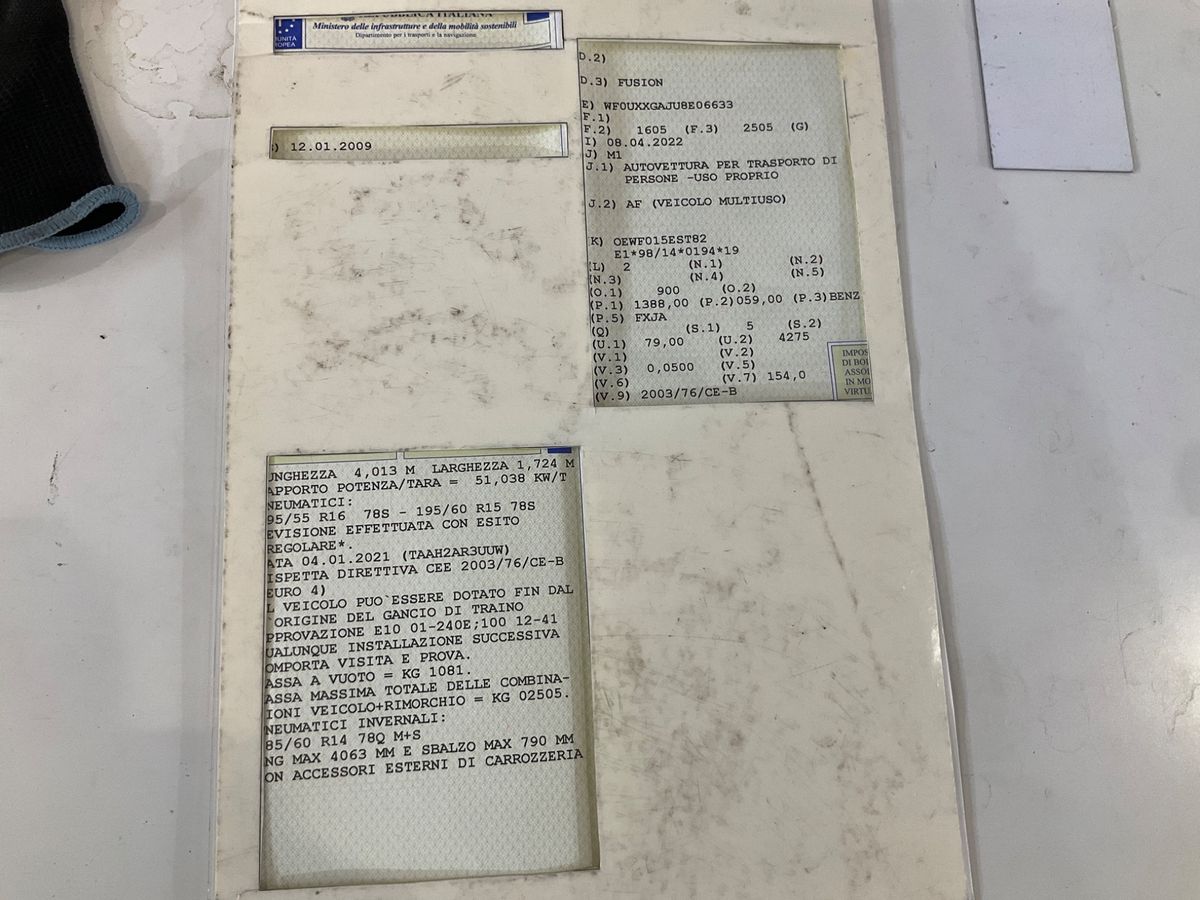 REPUBBLICA ITALIANA
Ministero delle infrastrutture e della mobilità sostenibili
Dipartimento per i trasporti e la navigazione
UNITA
OPEA
) 12.01.2009
D.2)
D.3) FUSION
E) WF0UXXGAJU8E06633
F.1)
F.2) 1605 (F.3) 2505 (G)
I) 08.04.2022
J) M1
J.1) AUTOVETTURA PER TRASPORTO DI
PERSONE -USO PROPRIO
J.2) AF (VEICOLO MULTIUSO)
K) OEWF015EST82
E1*98/14*0194*19
(L) 2 (N.1) (N.2)
(N.3) (N.4) (N.5)
(O.1) 900 (O.2)
(P.1) 1388,00 (P.2)059,00 (P.3)BENZ
(P.5) FXJA
(Q) (S.1) 5 (S.2)
(U.1) 79,00 (U.2) 4275
(V.1) (V.2)
(V.3) 0,0500 (V.5)
(V.6) (V.7) 154,0
(V.9) 2003/76/CE-B
IMPOS
DI BOL
ASSOL
IN MO
VIRTU
UNGHEZZA 4,013 M LARGHEZZA 1,724 M
APPORTO POTENZA/TARA = 51,038 KW/T
NEUMATICI:
95/55 R16 78S - 195/60 R15 78S
EVISIONE EFFETTUATA CON ESITO
REGOLARE*.
ATA 04.01.2021 (TAAH2AR3UUW)
ISPETTA DIRETTIVA CEE 2003/76/CE-B
EURO 4)
L VEICOLO PUO`ESSERE DOTATO FIN DAL
`ORIGINE DEL GANCIO DI TRAINO
PPROVAZIONE E10 01-240E;100 12-41
UALUNQUE INSTALLAZIONE SUCCESSIVA
OMPORTA VISITA E PROVA.
ASSA A VUOTO = KG 1081.
ASSA MASSIMA TOTALE DELLE COMBINA-
IONI VEICOLO+RIMORCHIO = KG 02505.
NEUMATICI INVERNALI:
85/60 R14 78Q M+S
NG MAX 4063 MM E SBALZO MAX 790 MM
ON ACCESSORI ESTERNI DI CARROZZERIA